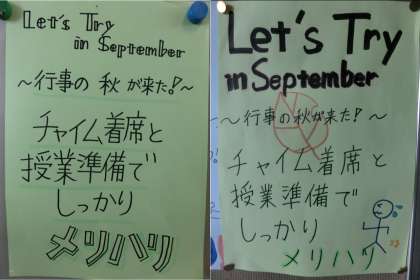 Let's Try
in September
～行事の秋が来た!～
チャイム着席と
授業準備で
しっかり
メリハリ
Let's Try
in September
～行事の秋が来た!～
チャイム着席と
授業準備で
しっかり
メリハリ